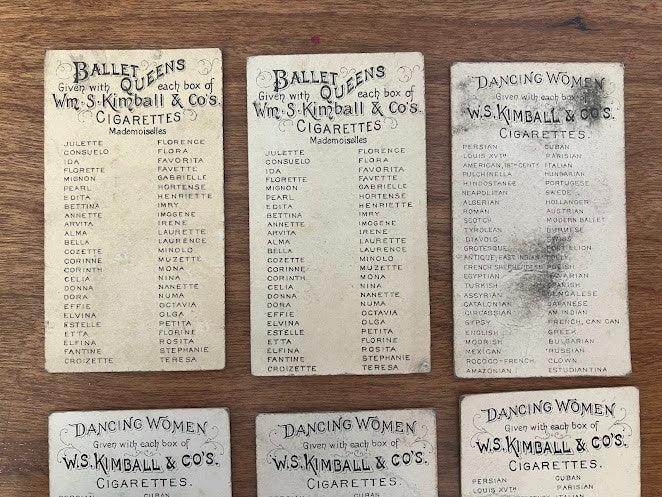 BALLET QUEENS
Given with each box of
Wm. S. Kimball & Co's.
CIGARETTES
Mademoiselles
JULETTE FLORENCE
CONSUELO FLORA
IDA FAVORITA
FLORETTE FAVETTE
MIGNON GABRIELLE
PEARL HORTENSE
EDITA HENRIETTE
BETTINA IMRY
ANNETTE IMOGENE
ARVITA IRENE
ALMA LAURETTE
BELLA LAURENCE
COZETTE MINOLO
CORINNE MUZETTE
CORINTH MONA
CELIA NINA
DONNA NANETTE
DORA NUMA
EFFIE OCTAVIA
ELVINA OLGA
ESTELLE PETITA
ETTA FLORINE
ELFINA ROSITA
FANTINE STEPHANIE
CROIZETTE TERESA
BALLET QUEENS
Given with each box of
Wm. S. Kimball & Co's.
CIGARETTES
Mademoiselles
JULETTE FLORENCE
CONSUELO FLORA
IDA FAVORITA
FLORETTE FAVETTE
MIGNON GABRIELLE
PEARL HORTENSE
EDITA HENRIETTE
BETTINA IMRY
ANNETTE IMOGENE
ARVITA IRENE
ALMA LAURETTE
BELLA LAURENCE
COZETTE MINOLO
CORINNE MUZETTE
CORINTH MONA
CELIA NINA
DONNA NANETTE
DORA NUMA
EFFIE OCTAVIA
ELVINA OLGA
ESTELLE PETITA
ETTA FLORINE
ELFINA ROSITA
FANTINE STEPHANIE
CROIZETTE TERESA
DANCING WOMEN
Given with each box of
W.S. KIMBALL & CO'S.
CIGARETTES.
PERSIAN CUBAN
LOUIS XVTH PARISIAN
AMERICAN, 18TH CENT. ITALIAN
PULCHINELLA HUNGARIAN
HINDOSTANEE PORTUGESE
NEAPOLITAN SWEDE
ALGERIAN HOLLANDER
ROMAN AUSTRIAN
SCOTCH MODERN BALLET
TYROLEAN BURMESE
DIAVOLO SWISS
GROTESQUE
ANTIQUE, EAST INDIAN
FRENCH SHEPHERDESS POLISH
EGYPTIAN
TURKISH SPANISH
ASSYRIAN
CATALONIAN JAPANESE
CIRCASSIAN AM. INDIAN
GYPSY FRENCH, CAN CAN
ENGLISH GREEK
MOORISH BULGARIAN
MEXICAN RUSSIAN
ROCOCO-FRENCH CLOWN
AMAZONIAN ESTUDIANTINA
DANCING WOMEN
Given with each box of
W.S. KIMBALL & CO'S.
CIGARETTES.
PERSIAN CUBAN
DANCING WOMEN
Given with each box of
W.S. KIMBALL & CO'S.
CIGARETTES.
PERSIAN CUBAN
DANCING WOMEN
Given with each box of
W.S. KIMBALL & CO'S.
CIGARETTES.
PERSIAN CUBAN
LOUIS XVTH PARISIAN
ITALIAN